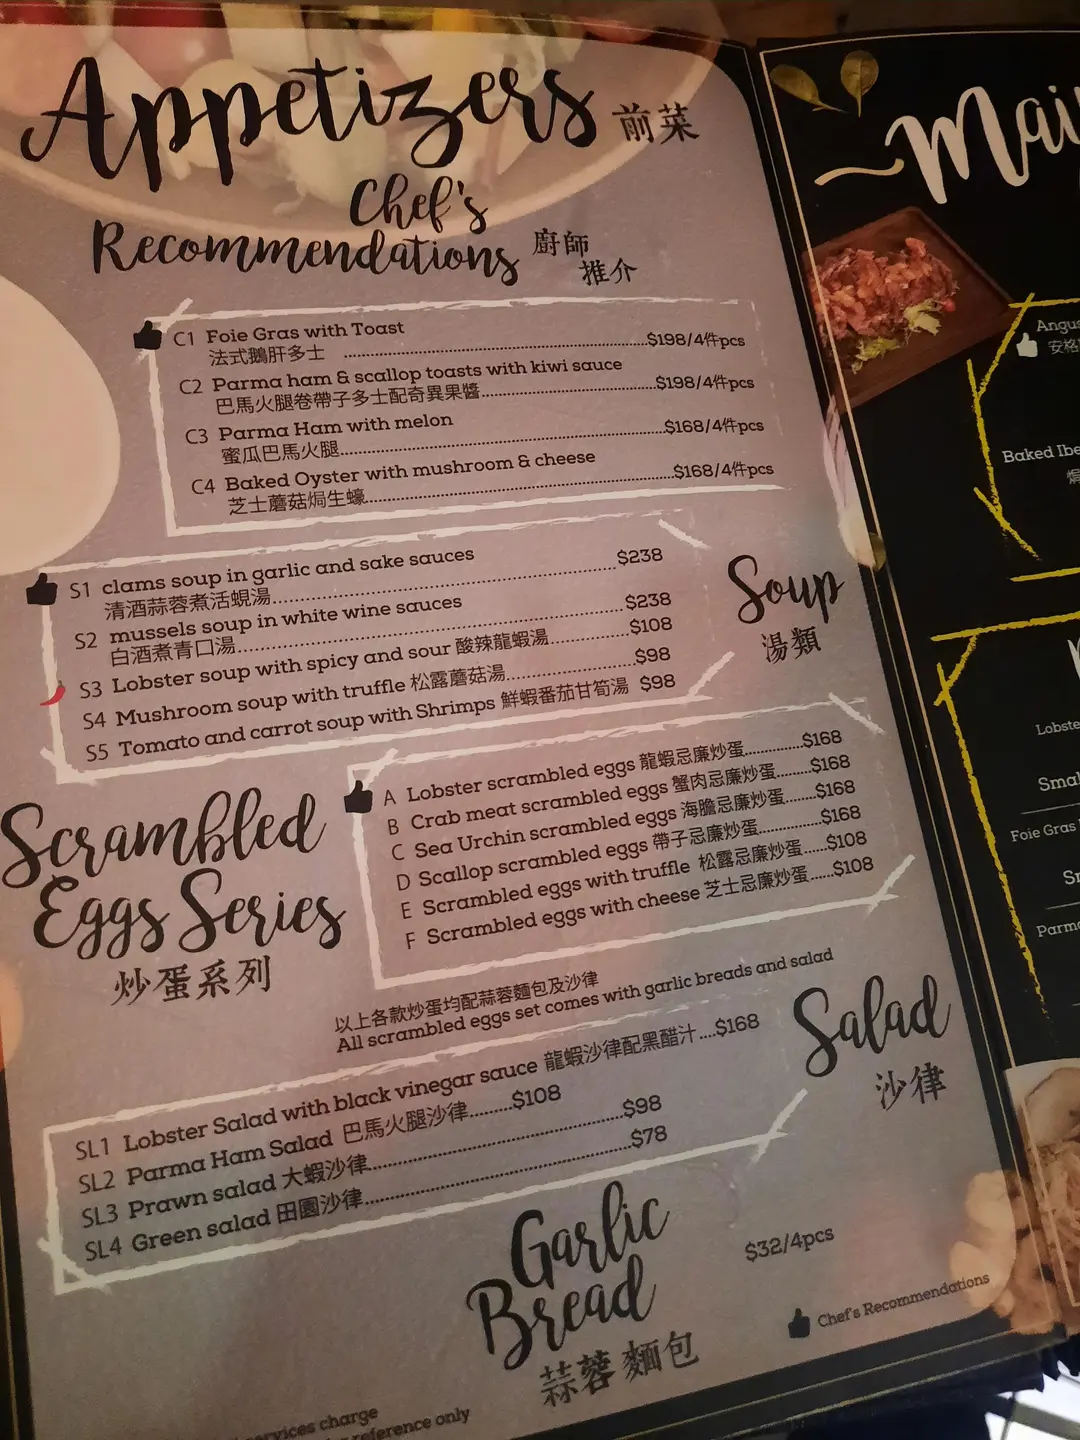 Appetizers 前菜
Chef's
Recommendations 廚師
推介
C1 Foie Gras with Toast
法式鵝肝多士 ........ $198/4件pcs
C2 Parma ham & scallop toasts with kiwi sauce
巴馬火腿卷帶子多士配奇異果醬........$198/4件pcs
C3 Parma Ham with melon
蜜瓜巴馬火腿........$168/4件pcs
C4 Baked Oyster with mushroom & cheese
芝士蘑菇焗生蠔........$168/4件pcs
S1 clams soup in garlic and sake sauces
清酒蒜蓉煮活蜆湯........$238
S2 mussels soup in white wine sauces
白酒煮青口湯........$238
S3 Lobster soup with spicy and sour 酸辣龍蝦湯........$108
S4 Mushroom soup with truffle 松露蘑菇湯........$98
S5 Tomato and carrot soup with Shrimps 鮮蝦番茄甘筍湯 $98
Soup
湯類
Scrambled
Eggs Series
炒蛋系列
A Lobster scrambled eggs 龍蝦忌廉炒蛋........$168
B Crab meat scrambled eggs 蟹肉忌廉炒蛋........$168
C Sea Urchin scrambled eggs 海膽忌廉炒蛋........$168
D Scallop scrambled eggs 帶子忌廉炒蛋........$168
E Scrambled eggs with truffle 松露忌廉炒蛋......$108
F Scrambled eggs with cheese 芝士忌廉炒蛋......$108
以上各款炒蛋均配蒜蓉麵包及沙律
All scrambled eggs set comes with garlic breads and salad
Salad
沙律
SL1 Lobster Salad with black vinegar sauce 龍蝦沙律配黑醋汁....$168
SL2 Parma Ham Salad 巴馬火腿沙律.........$108
SL3 Prawn salad 大蝦沙律........$98
SL4 Green salad 田園沙律........$78
Garlic
Bread
蒜蓉麵包
$32/4pcs
Chef's Recommendations
services charge
reference only
Mai
Angus
安格
Baked Ibe
焗
Lobste
Smal
Foie Gras
Sr
Parma